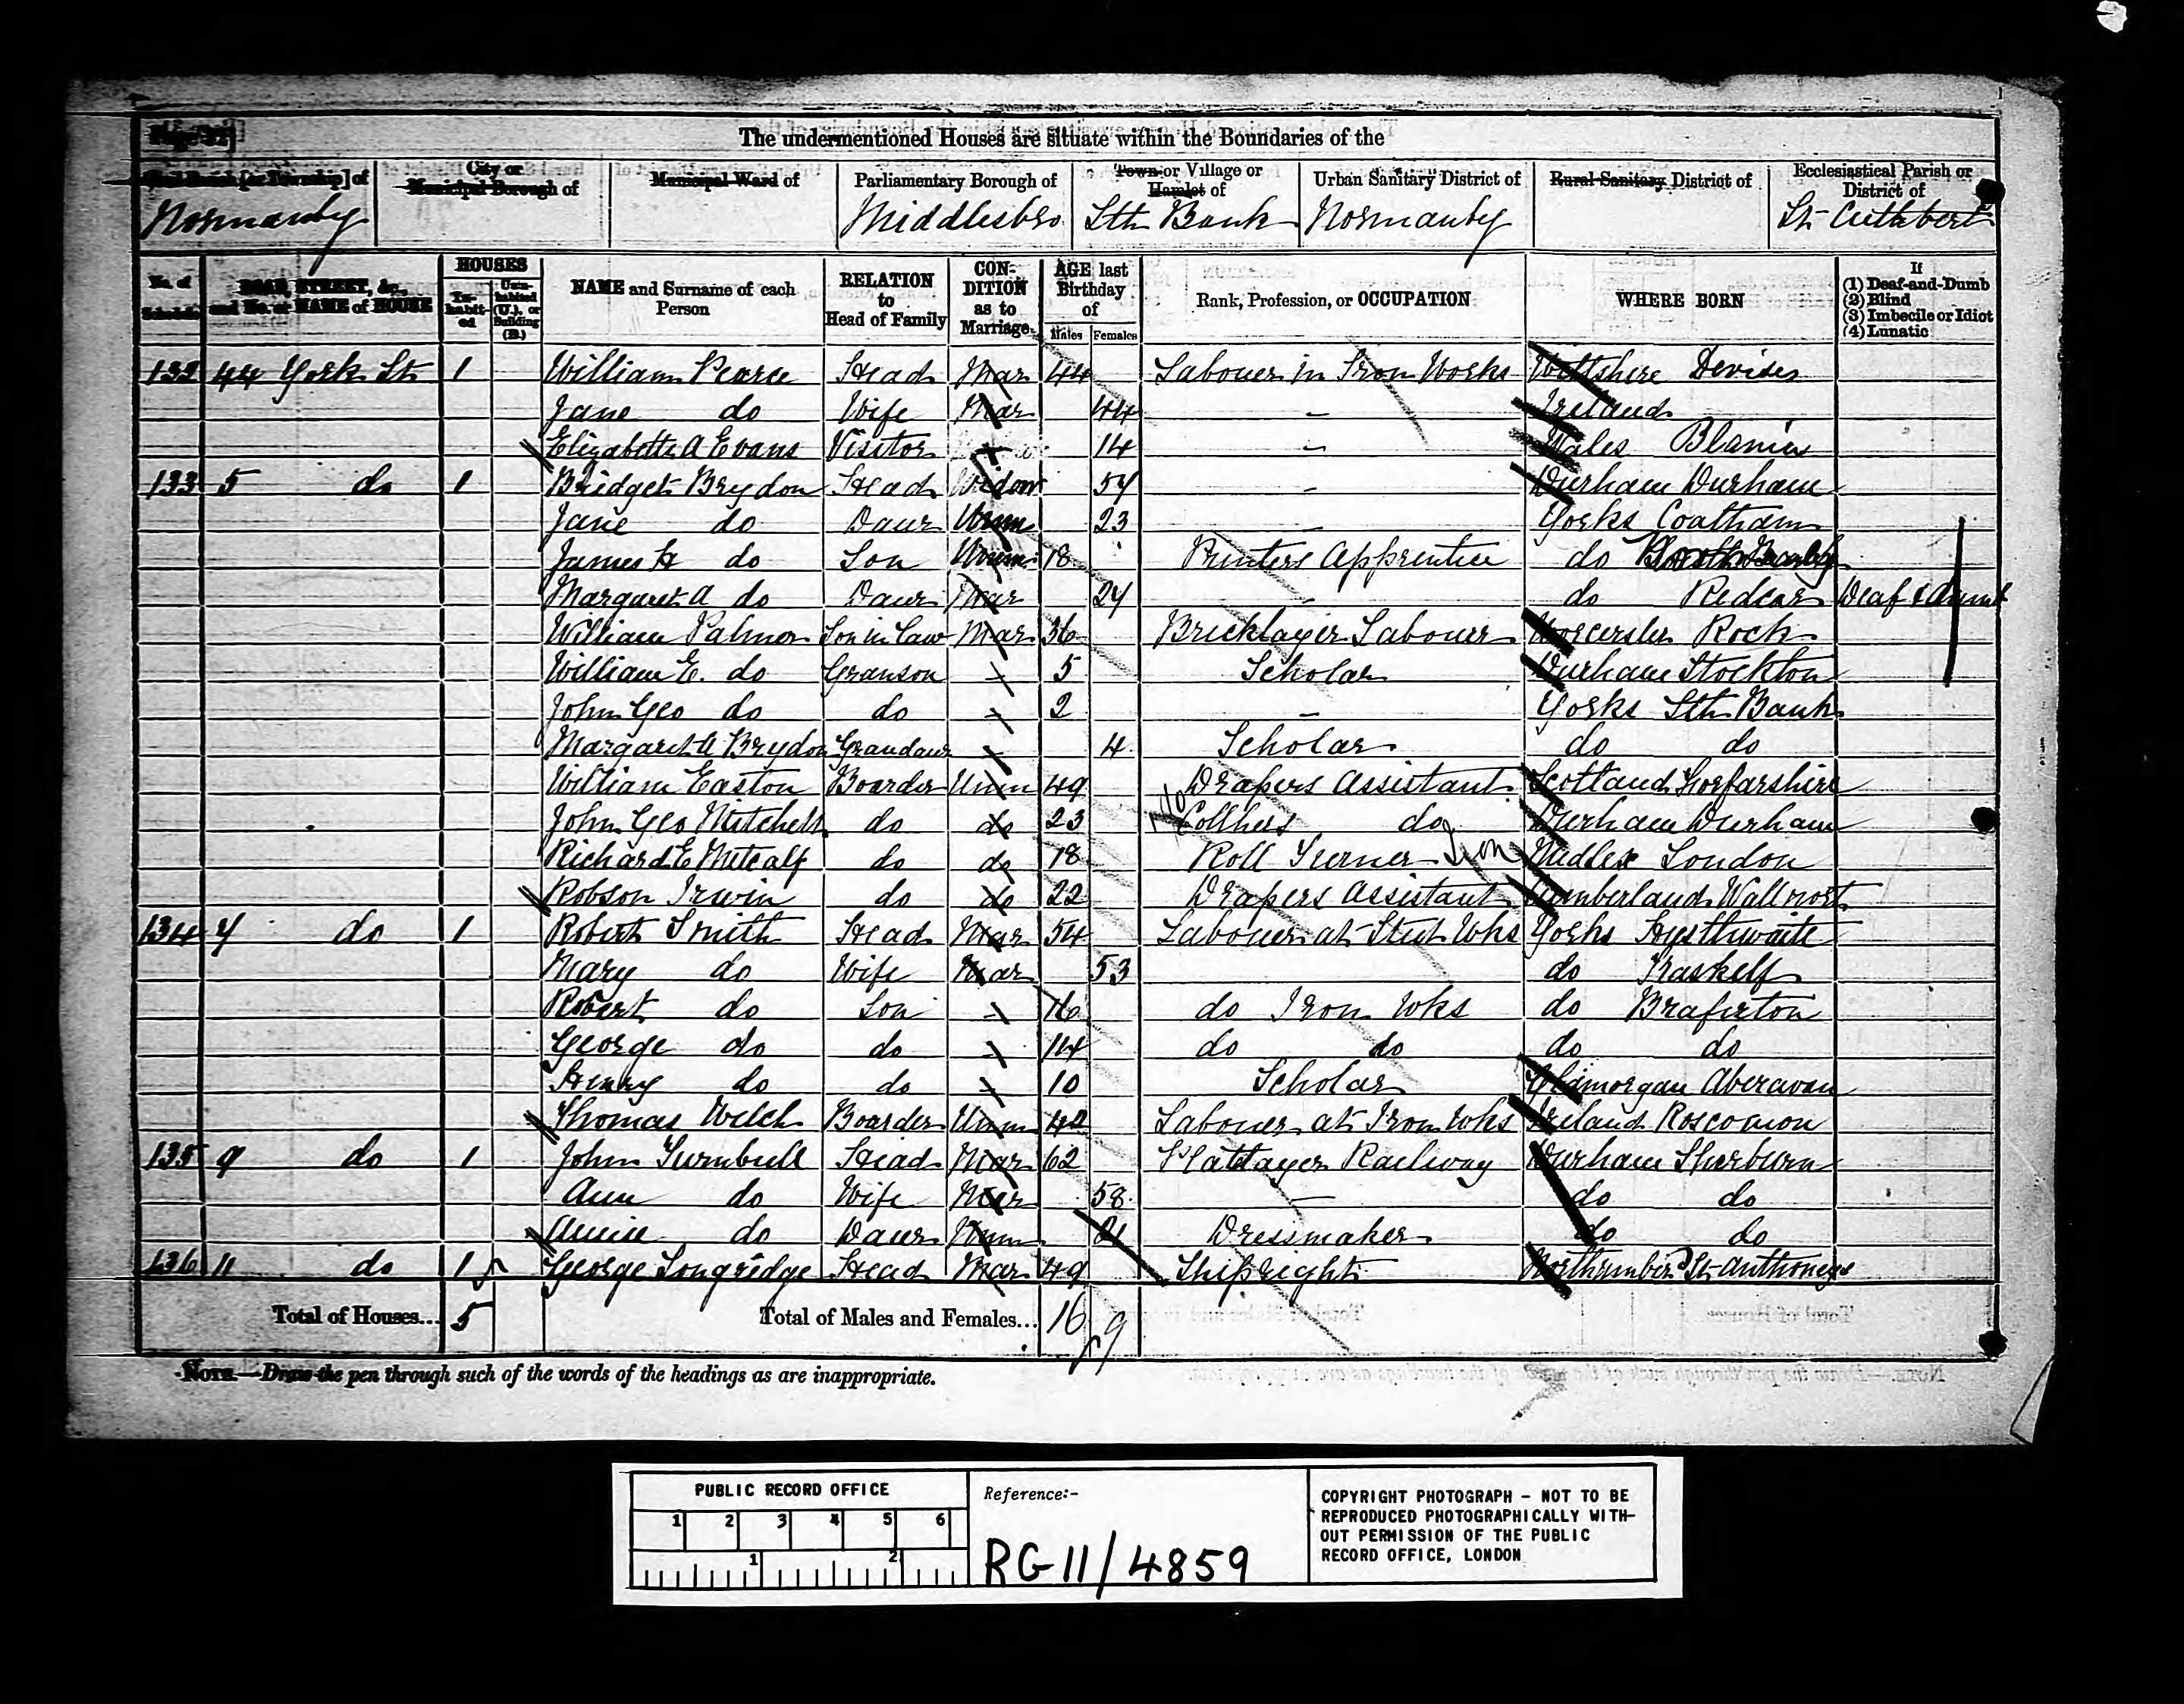 The undermentioned Houses are situate within the Boundaries of the
Civil Parish [or Township] of
City or Municipal Borough of
Municipal Ward of
Parliamentary Borough of
Town or Village or Hamlet of
Urban Sanitary District of
Rural Sanitary District of
Ecclesiastical Parish or District of
Normanby Middlesbro Sth Bank Normanby St Cuthbert
No. of Schedule
ROAD, STREET, &c., and No. or NAME of HOUSE
HOUSES
Inhabited
Uninhabited (U.), or Building (B.)
NAME and Surname of each Person
RELATION to Head of Family
CONDITION as to Marriage
AGE last Birthday of
Males Females
Rank, Profession, or OCCUPATION
WHERE BORN
If
(1) Deaf-and-Dumb
(2) Blind
(3) Imbecile or Idiot
(4) Lunatic
132 44 York St 1 William Pearce Head Mar 44 Labourer in Iron Works Wiltshire Devises
Jane do Wife Mar 44 - Ireland
Elizabeth A Evans Visitor 14 - Wales
133 5 do 1 Bridget Brydon Head Widow 54 - Durham Durham
Jane do Daur Unm 23 - Yorks Coatham
James H do Son Unm 18 Printers Apprentice do
Margaret A do Daur Mar 24 - do Redcar Deaf & Dumb
William Palmer Son in Law Mar 36 Bricklayer Labourer Worcester Rock
William E. do Granson 5 Scholar Durham Stockton
John Geo do do 2 - Yorks Sth Bank
Margaret A Brydon Grandaur 4 Scholar do do
William Easton Boarder Unm 49 Drapers Assistant Scotland Forfarshire
John Geo Mitchell do do 23 do Durham Durham
Richard E Metcalf do do 18 Roll Turner Iron Midlex London
Robson Irwin do do 22 Drapers Assistant Cumberland
134 7 do 1 Robert Smith Head Mar 54 Labourer at Steel Wks Yorks Husthwaite
Mary do Wife Mar 53 do Raskelf
Robert do Son 16 do Iron Wks do Braferton
George do do 14 do do do do
Henry do do 10 Scholar Glamorgan Aberavan
Thomas Welch Boarder Unm 42 Labourer at Iron Wks Ireland Roscomon
135 9 do 1 John Turnbull Head Mar 62 Platelayer Railway Durham Sherburn
Ann do Wife Mar 58 - do do
Annie do Daur Unm 21 Dressmaker do do
136 11 do 1 George Longridge Head Mar 49 Shipright Northumberd St Anthoneys
Total of Houses... 5 Total of Males and Females... 16 9
NOTE.—Draw the pen through such of the words of the headings as are inappropriate.
PUBLIC RECORD OFFICE
1 2 3 4 5 6
1 2
Reference:-
RG 11/4859
COPYRIGHT PHOTOGRAPH - NOT TO BE
REPRODUCED PHOTOGRAPHICALLY WITH-
OUT PERMISSION OF THE PUBLIC
RECORD OFFICE, LONDON